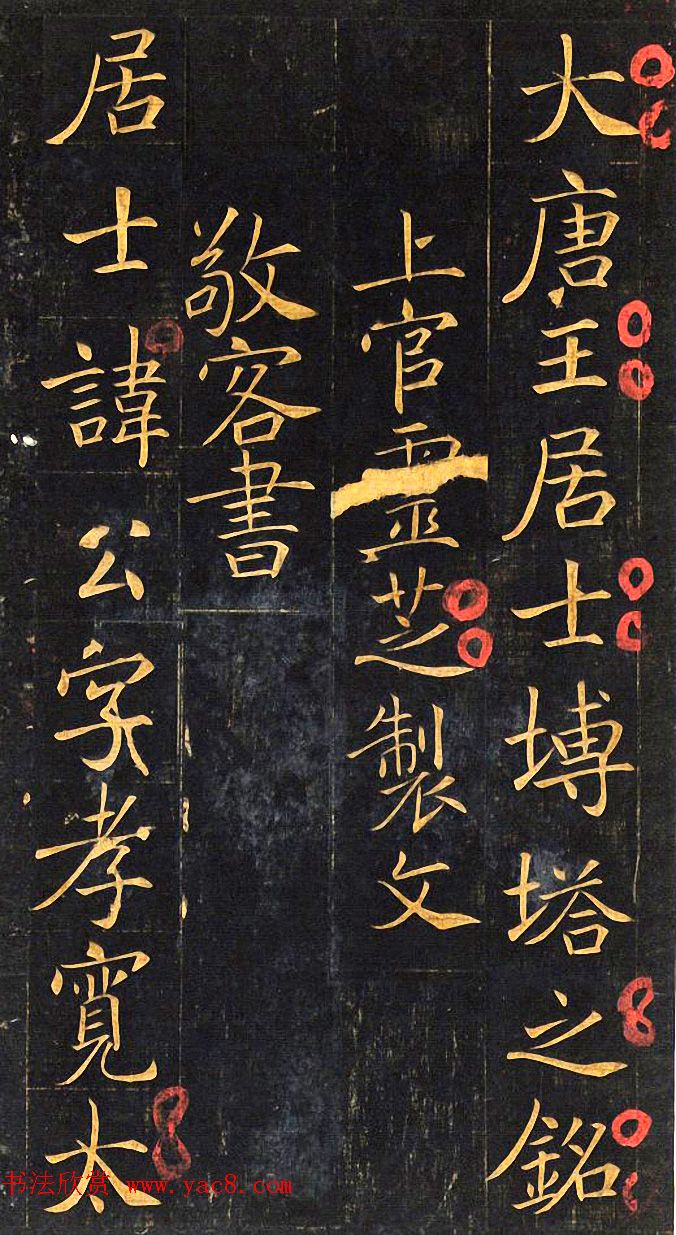 大唐王居士塼塔之銘
上官靈芝製文
敬客書
居士諱公字孝寬太
书法欣赏 www.yac8.com